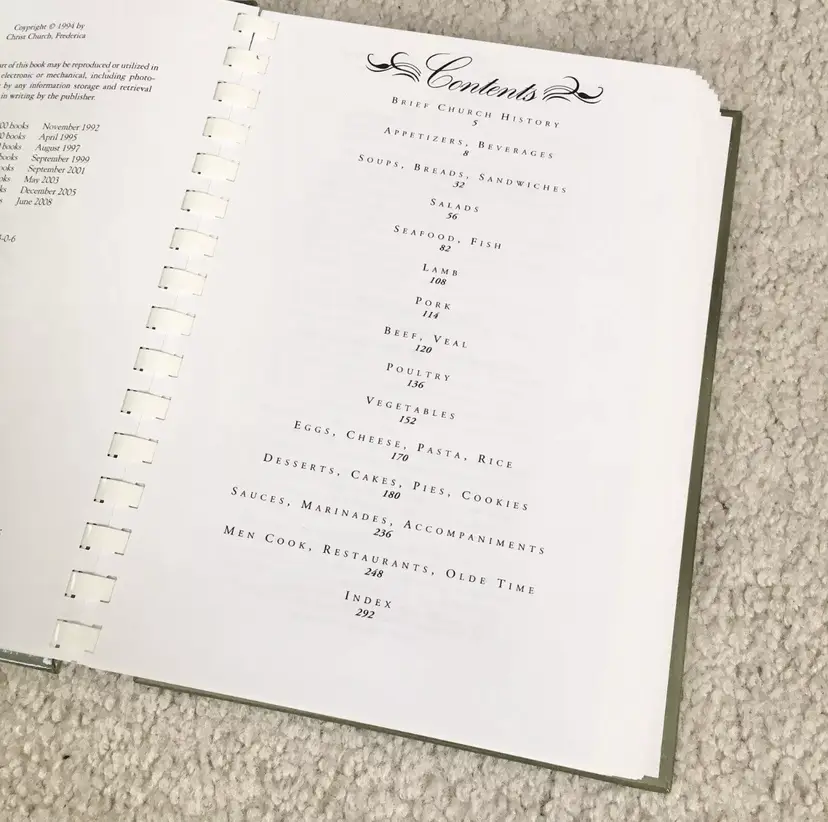 Coypright © 1994 by
Christ Church, Frederica
art of this book may be reproduced or utilized in
electronic or mechanical, including photo-
by any information storage and retrieval
in writing by the publisher.
00 books November 1992
0 books April 1995
books August 1997
books September 1999
oks September 2001
ks May 2003
ks December 2005
s June 2008
-0-6
Contents
Brief Church History
5
Appetizers, Beverages
8
Soups, Breads, Sandwiches
32
Salads
56
Seafood, Fish
82
Lamb
108
Pork
114
Beef, Veal
120
Poultry
136
Vegetables
152
Eggs, Cheese, Pasta, Rice
170
Desserts, Cakes, Pies, Cookies
180
Sauces, Marinades, Accompaniments
236
Men Cook, Restaurants, Olde Time
248
Index
292